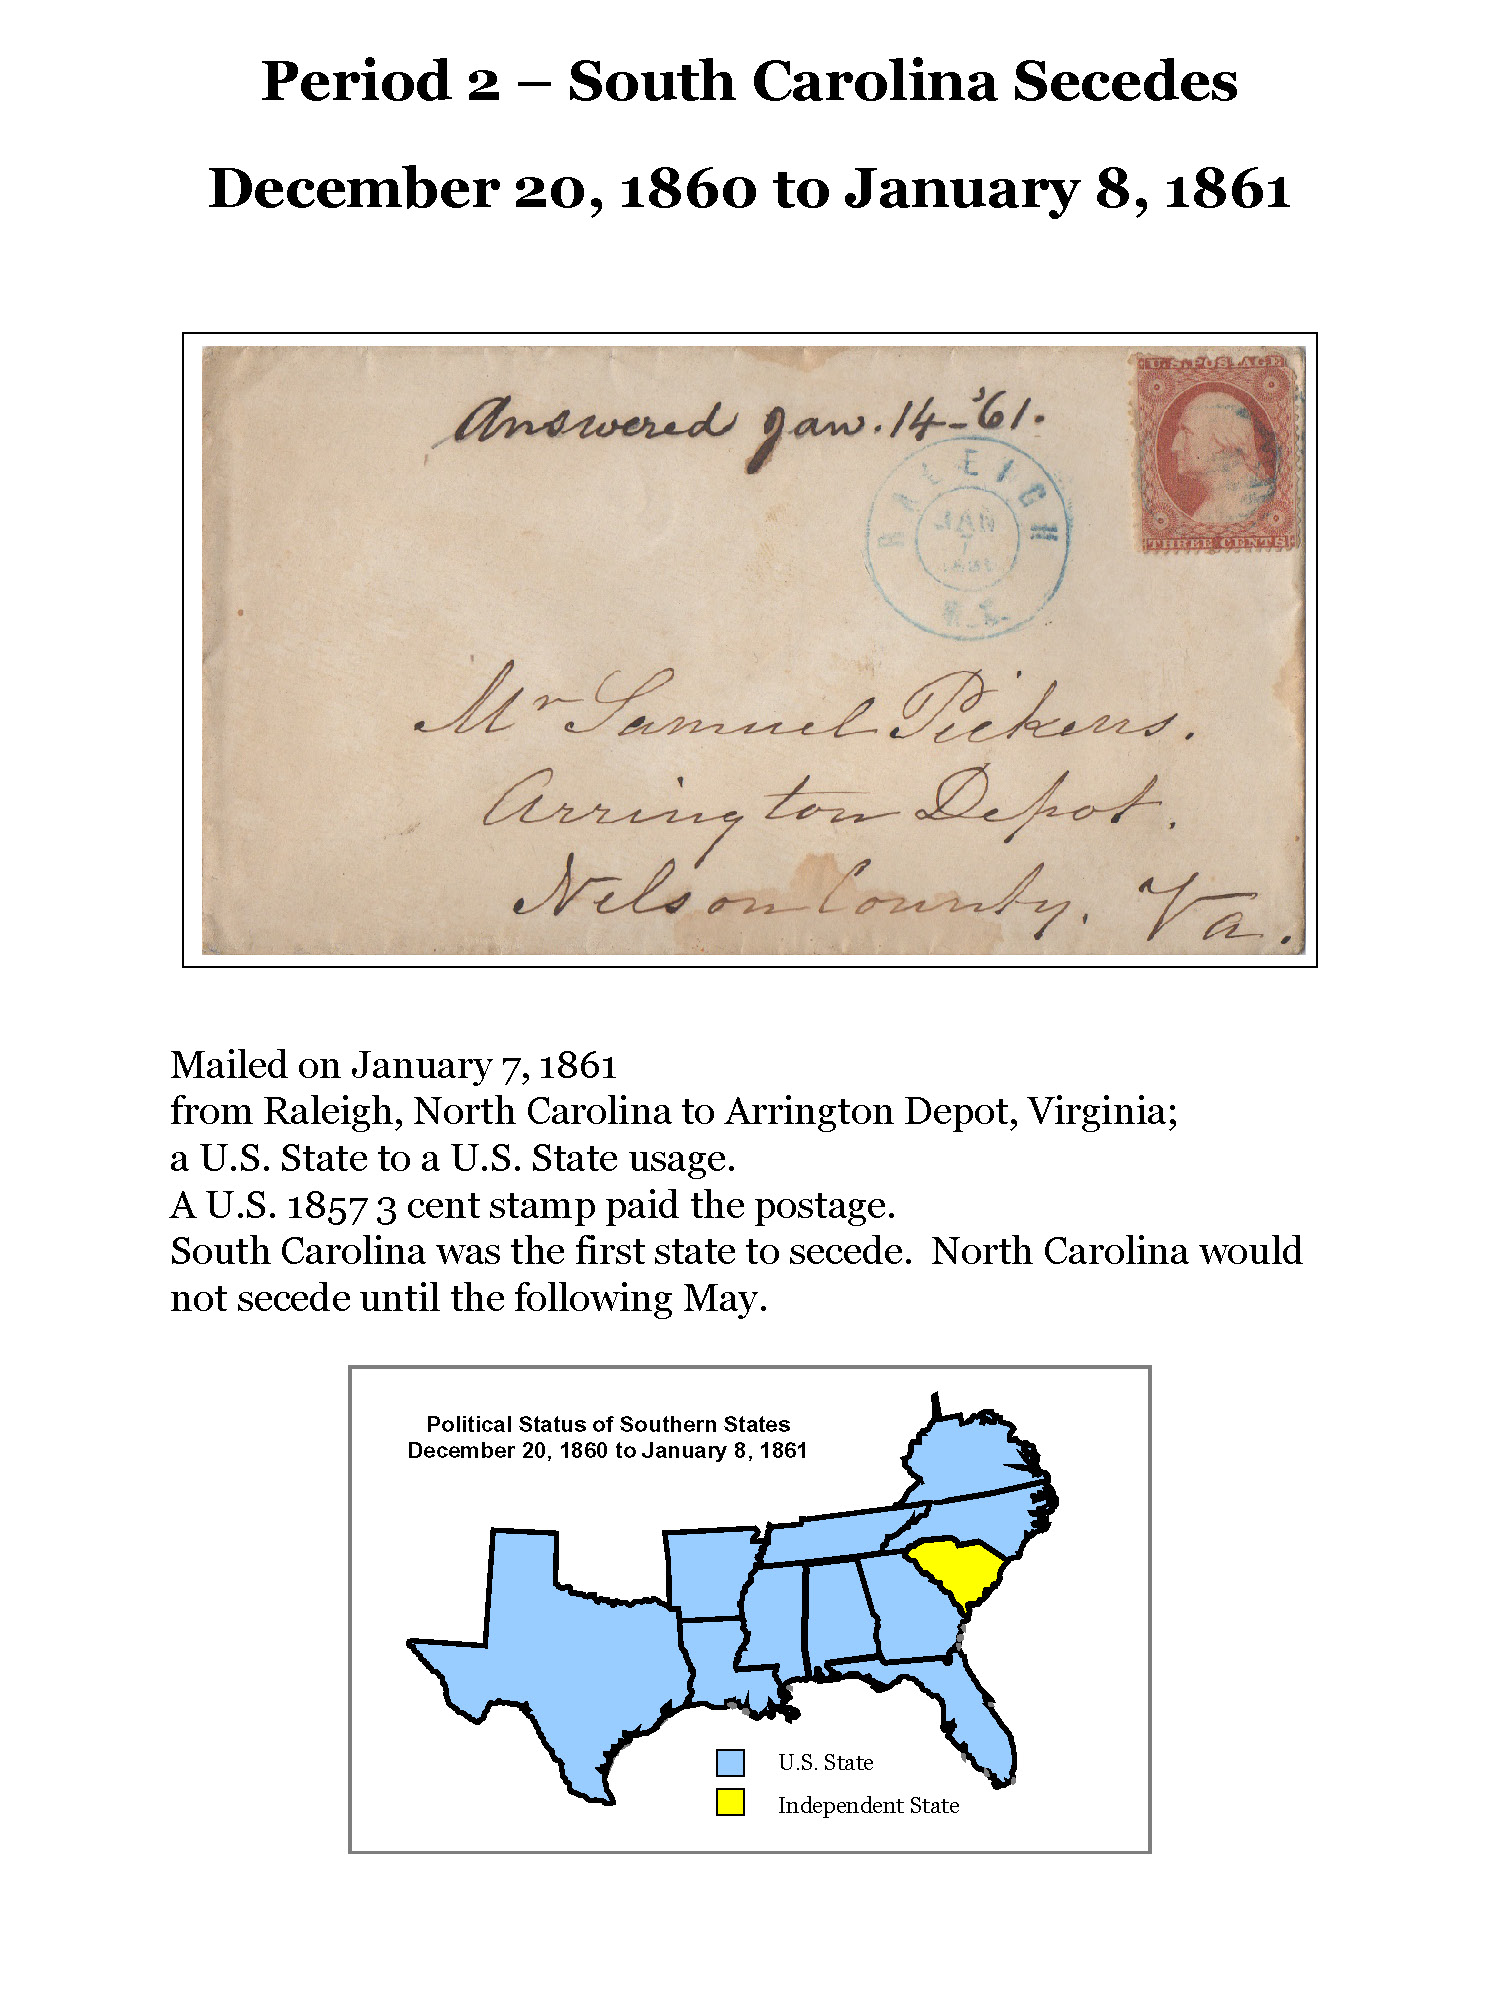 Period 2 – South Carolina Secedes
December 20, 1860 to January 8, 1861
Answered Jan. 14-'61.
U.S. POSTAGE
THREE CENTS
RALEIGH
JAN
7
N.C.
Mr Samuel Pickens.
Arrington Depot.
Nelson County. Va.
Mailed on January 7, 1861
from Raleigh, North Carolina to Arrington Depot, Virginia;
a U.S. State to a U.S. State usage.
A U.S. 1857 3 cent stamp paid the postage.
South Carolina was the first state to secede.  North Carolina would
not secede until the following May.
Political Status of Southern States
December 20, 1860 to January 8, 1861
U.S. State
Independent State